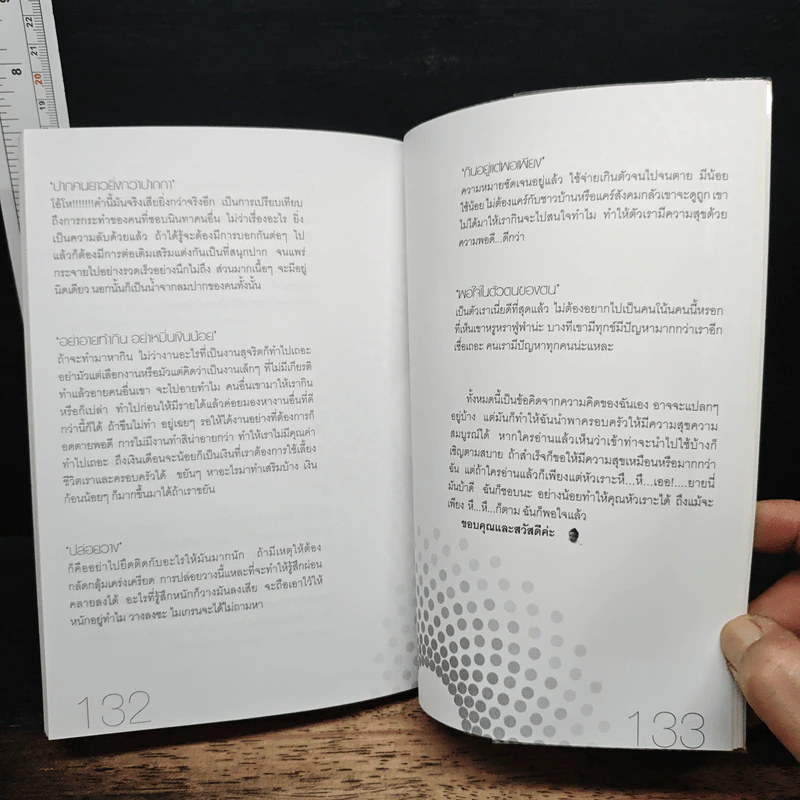 "ปากคนยาวยิ่งกว่าปากกา"
โอ้โห!!!!!!!คำนี้มันจริงเสียยิ่งกว่าจริงอีก เป็นการเปรียบเทียบ
ถึงการกระทำของคนที่ชอบนินทาคนอื่น ไม่ว่าเรื่องอะไร ยิ่ง
เป็นความลับด้วยแล้ว ถ้าได้รู้จะต้องมีการบอกกันต่อๆ ไป
แล้วก็ต้องมีการต่อเติมเสริมแต่งกันเป็นที่สนุกปาก จนแพร่
กระจายไปอย่างรวดเร็วอย่างนึกไม่ถึง ส่วนมากเนื้อๆ จะมีอยู่
นิดเดียว นอกนั้นก็เป็นน้ำจากลมปากของคนทั้งนั้น
"อย่าอายทำกิน อย่าหมิ่นเงินน้อย"
ถ้าจะทำมาหากิน ไม่ว่างานอะไรที่เป็นงานสุจริตก็ทำไปเถอะ
อย่ามัวแต่เลือกงานหรือมัวแต่คิดว่าเป็นงานเล็กๆ ที่ไม่มีเกียรติ
ทำแล้วอายคนอื่นเขา จะไปอายทำไม คนอื่นเขามาให้เรากิน
หรือก็เปล่า ทำไปก่อนให้มีรายได้แล้วค่อยมองหางานอื่นที่ดี
กว่านี้ก็ได้ ถ้าขืนไม่ทำ อยู่เฉยๆ รอให้ได้งานอย่างที่ต้องการก็
อดตายพอดี การไม่มีงานทำสิน่าอายกว่า ทำให้เราไม่มีคุณค่า
ทำไปเถอะ ถึงเงินเดือนจะน้อยก็เป็นเงินที่เราต้องการใช้เลี้ยง
ชีวิตเราและครอบครัวได้ ขยันๆ หาอะไรมาทำเสริมบ้าง เงิน
ก้อนน้อยๆ ก็มากขึ้นมาได้ถ้าเราขยัน
"ปล่อยวาง"
ก็คืออย่าไปยึดติดกับอะไรให้มันมากนัก ถ้ามีเหตุให้ต้อง
กลัดกลุ้มเคร่งเครียด การปล่อยวางนี้แหละที่จะทำให้รู้สึกผ่อน
คลายลงได้ อะไรที่รู้สึกหนักก็วางมันลงเสีย จะถือเอาไว้ให้
หนักอยู่ทำไม วางลงซะ ไมเกรนจะได้ไม่ถามหา
132
"กินอยู่แต่พอเพียง"
ความหมายชัดเจนอยู่แล้ว ใช้จ่ายเกินตัวจนไปจนตาย มีน้อย
ใช้น้อย ไม่ต้องแคร์กับชาวบ้านหรือแคร์สังคมกลัวเขาจะดูถูก เขา
ไม่ได้มาให้เรากินจะไปสนใจทำไม ทำให้ตัวเรามีความสุขด้วย
ความพอดี...ดีกว่า
"พอใจในตัวตนของตน"
เป็นตัวเราเนี่ยดีที่สุดแล้ว ไม่ต้องอยากไปเป็นคนโน้นคนนี้หรอก
ที่เห็นเขาหรูหราฟู่ฟ่าน่ะ บางทีเขามีทุกข์มีปัญหามากกว่าเราอีก
เชื่อเถอะ คนเรามีปัญหาทุกคนน่ะแหละ
ทั้งหมดนี้เป็นข้อคิดจากความคิดของฉันเอง อาจจะแปลกๆ
อยู่บ้าง แต่มันก็ทำให้ฉันนำพาครอบครัวให้มีความสุขความ
สมบูรณ์ได้ หากใครอ่านแล้วเห็นว่าเข้าท่าจะนำไปใช้บ้างก็
เชิญตามสบาย ถ้าสำเร็จก็ขอให้มีความสุขเหมือนหรือมากกว่า
ฉัน แต่ถ้าใครอ่านแล้วก็เพียงแต่หัวเราะหึ...หึ...เออ!....ยายนี่
มันบ้าดี ฉันก็ชอบนะ อย่างน้อยทำให้คุณหัวเราะได้ ถึงแม้จะ
เพียง หึ...หึ...ก็ตาม ฉันก็พอใจแล้ว
ขอบคุณและสวัสดีค่ะ
133
8
22
21
20
19